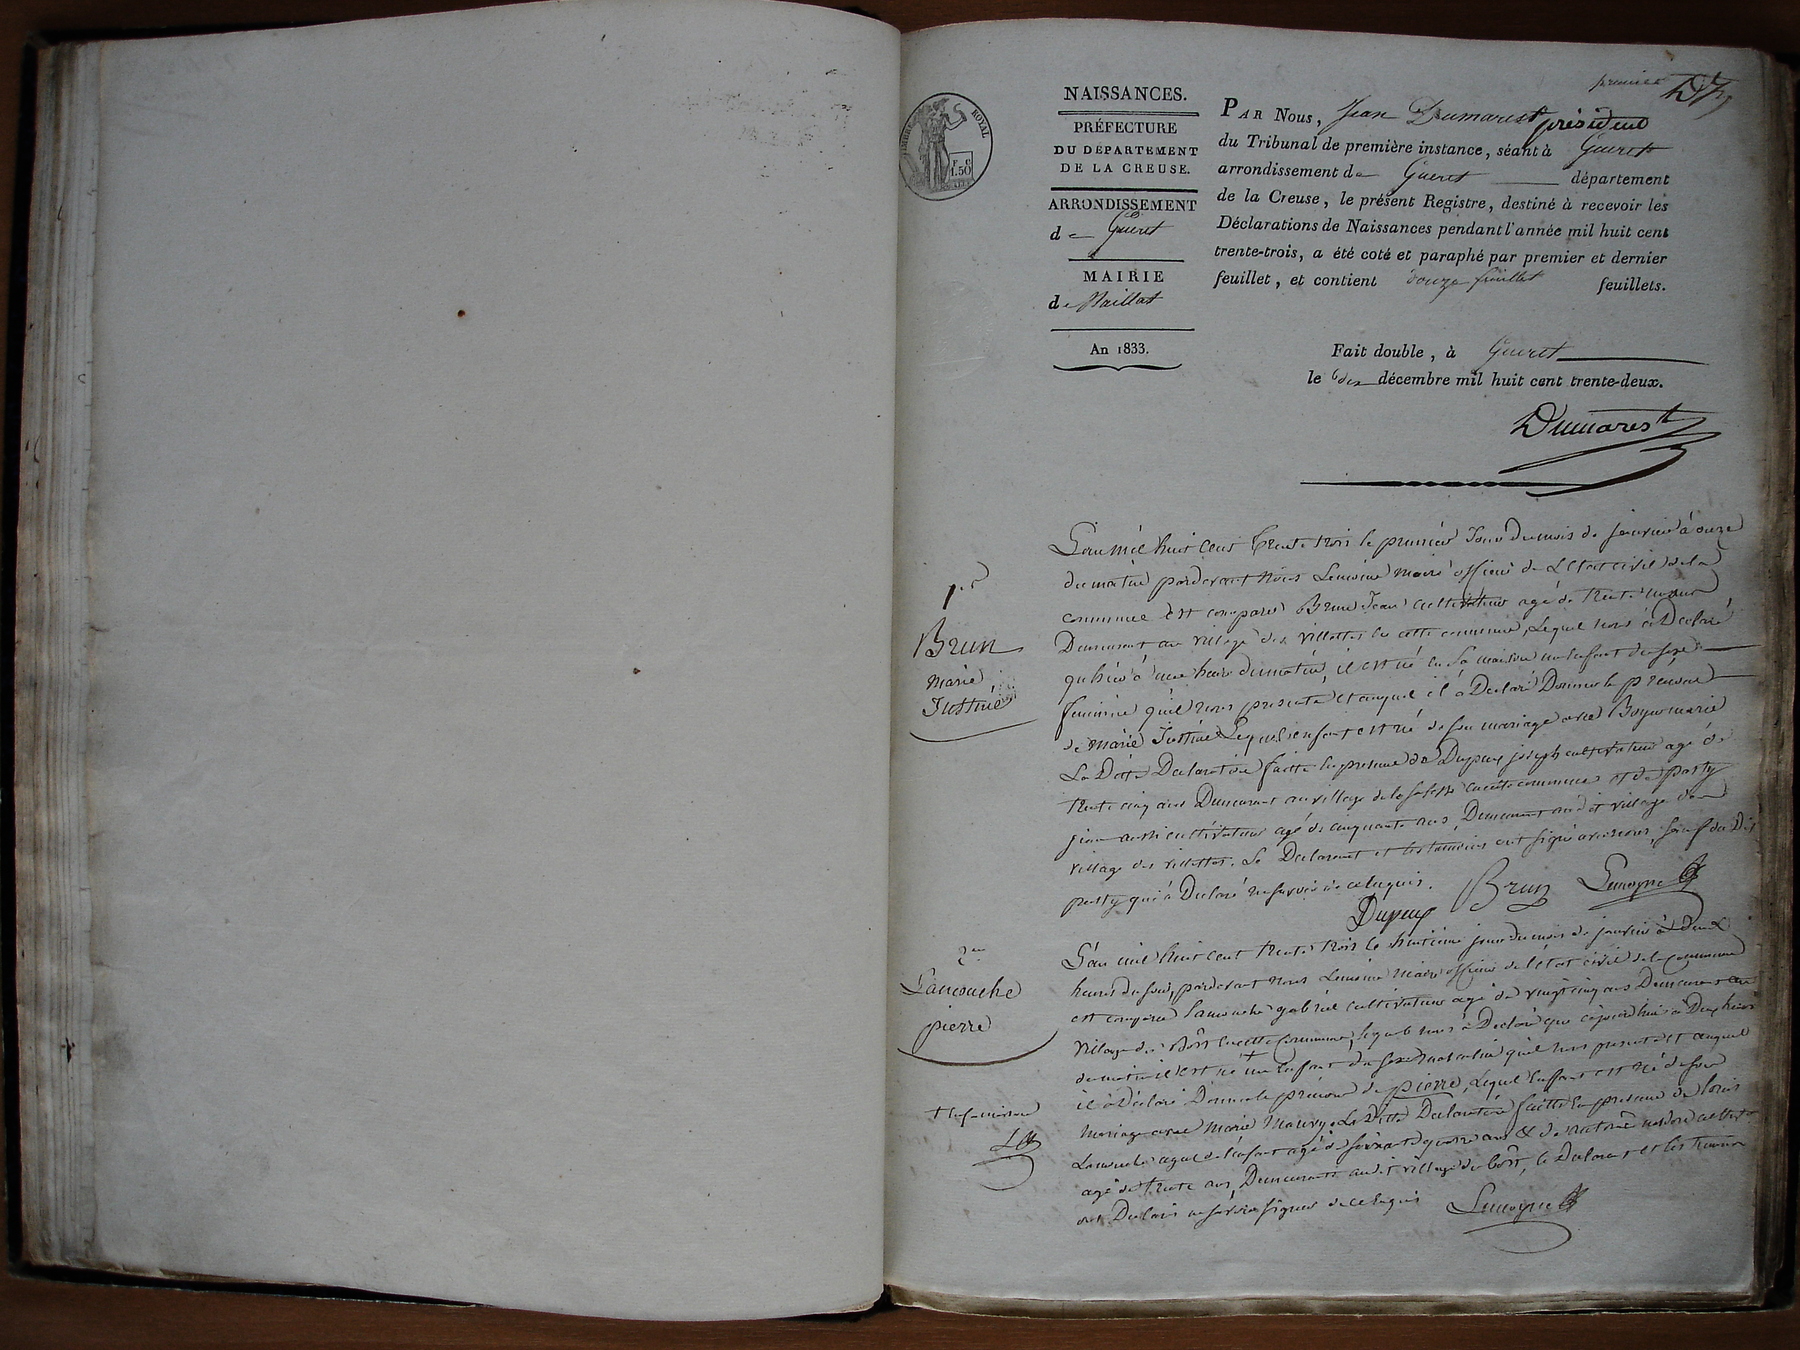 premier
NAISSANCES.
PRÉFECTURE
DU DÉPARTEMENT
DE LA CREUSE.
ARRONDISSEMENT
de Gueret
MAIRIE
de Naillat
An 1833.
TIMBRE ROYAL
1.50
PAR Nous, Jean Dumarest président
du Tribunal de première instance, séant à Gueret
arrondissement de Gueret département
de la Creuse, le présent Registre, destiné à recevoir les
Déclarations de Naissances pendant l'année mil huit cent
trente-trois, a été coté et paraphé par premier et dernier
feuillet, et contient douze feuillet feuillets.
Fait double, à Gueret
le 6 décembre mil huit cent trente-deux.
Dumarest
1er
Brun
marie
Justine
L'an mil huit cent trente trois le premier Jour du mois de janvier à onze
du matin pardevant Nous Lemoine maire officier de L'Etat civil de la
commune est comparu Brun Jean cultivateur agé de trente
Demeurant au village des villettes en cette commune, Lequel nous à Declaré
qu'hier à une heure du matin, il est né en Sa maison un Enfant du sexe
feminin qu'il nous presente et auquel il à Declaré Donner le prénom
de marie Justine Lequel enfant est né de son mariage avec marie
La Ditte Declaration faitte en presence de Dupuy joseph cultivateur agé de
trente cinq ans Demeurant au village de en cette commune et de
jean aussi cultivateur agé de cinquante ans, Demeurant au dit village
village des villettes. Le Declarant et les temoins ont signé avec nous, sauf le Dit
qui à Declaré ne savoir de ce requis.
Dupuy Brun Lemoyne
2me
Lamouche
pierre
L'an mil huit cent trente trois le huitieme jour du mois de janvier à Deux
heures du soir, pardevant nous Lemoine Maire officier de l'état civil de la commune
est comparu Lamouche gabriel cultivateur agé de vingt cinq ans Demeurant au
village de en cette Commune, lequel nous à Declaré que cejourd'hui à Dix heures
du matin il est né + un Enfant du Sexe masculin qu'il nous presente et auquel
il à Declaré Donner le prénom de pierre, Lequel Enffant est né de son
mariage avec Marie La Ditte Declaration faitte En presence de
Lamouche ayeul de l'enfant agé de soixante quatre ans & de
agé de trente ans, Demeurants au dit village de le Declarant et les temoins
ont Declaré ne savoir signer de ce requis Lemoyne
+ en sa maison